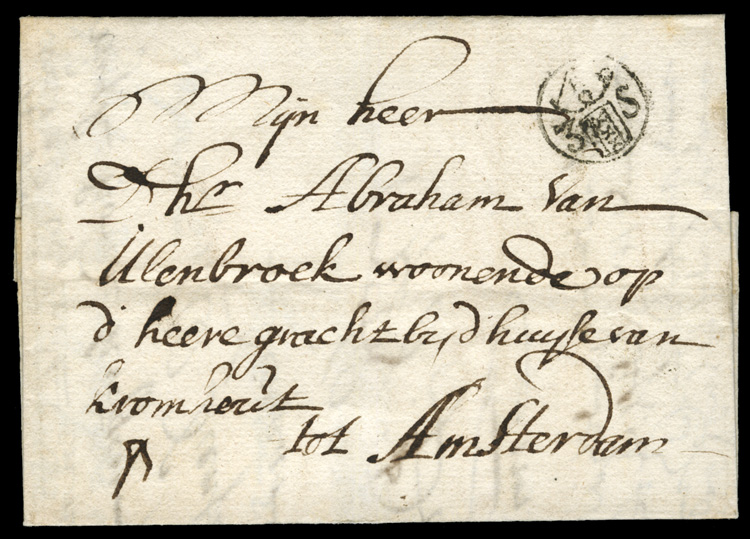 Mijn heer
Dhr Abraham van
Ulenbroek woonende op
d' heere gracht by d'huysse van
kromhout
tot Amsterdam